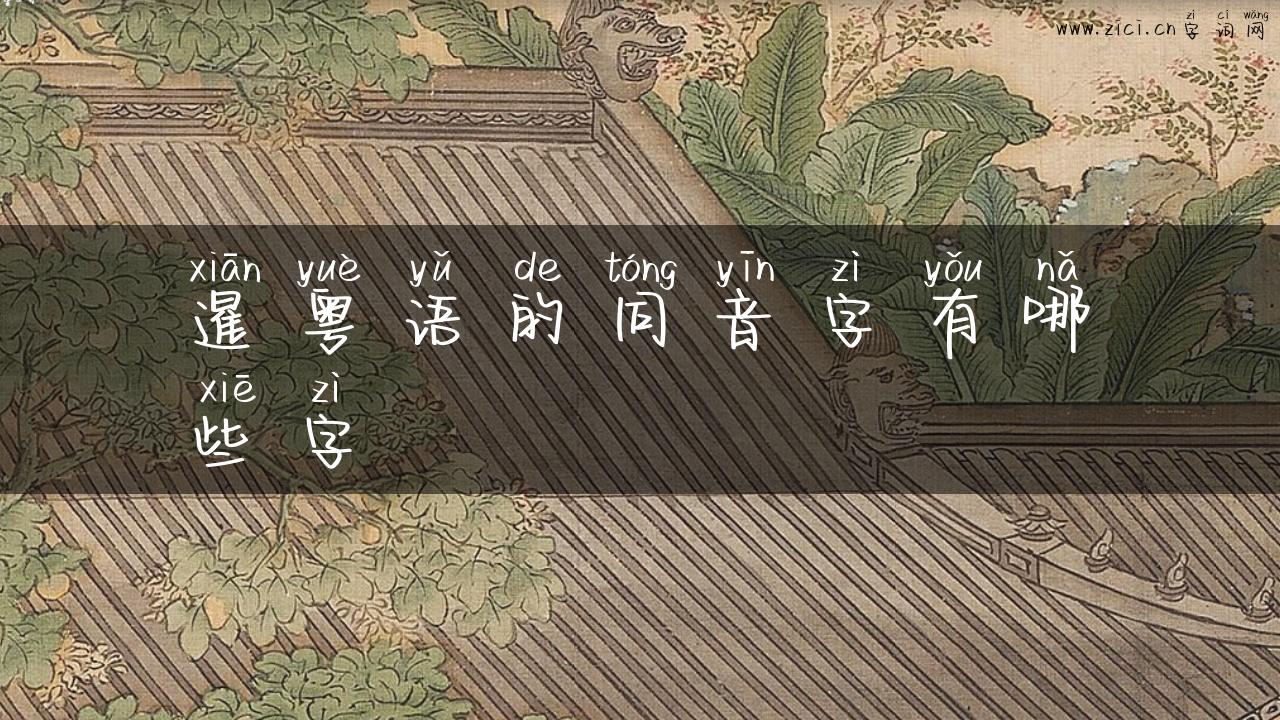 zì cí wǎng
www.zici.cn 字词网
xiān yuè yǔ de tóng yīn zì yǒu nǎ
暹粤语的同音字有哪
xiē zì
些字